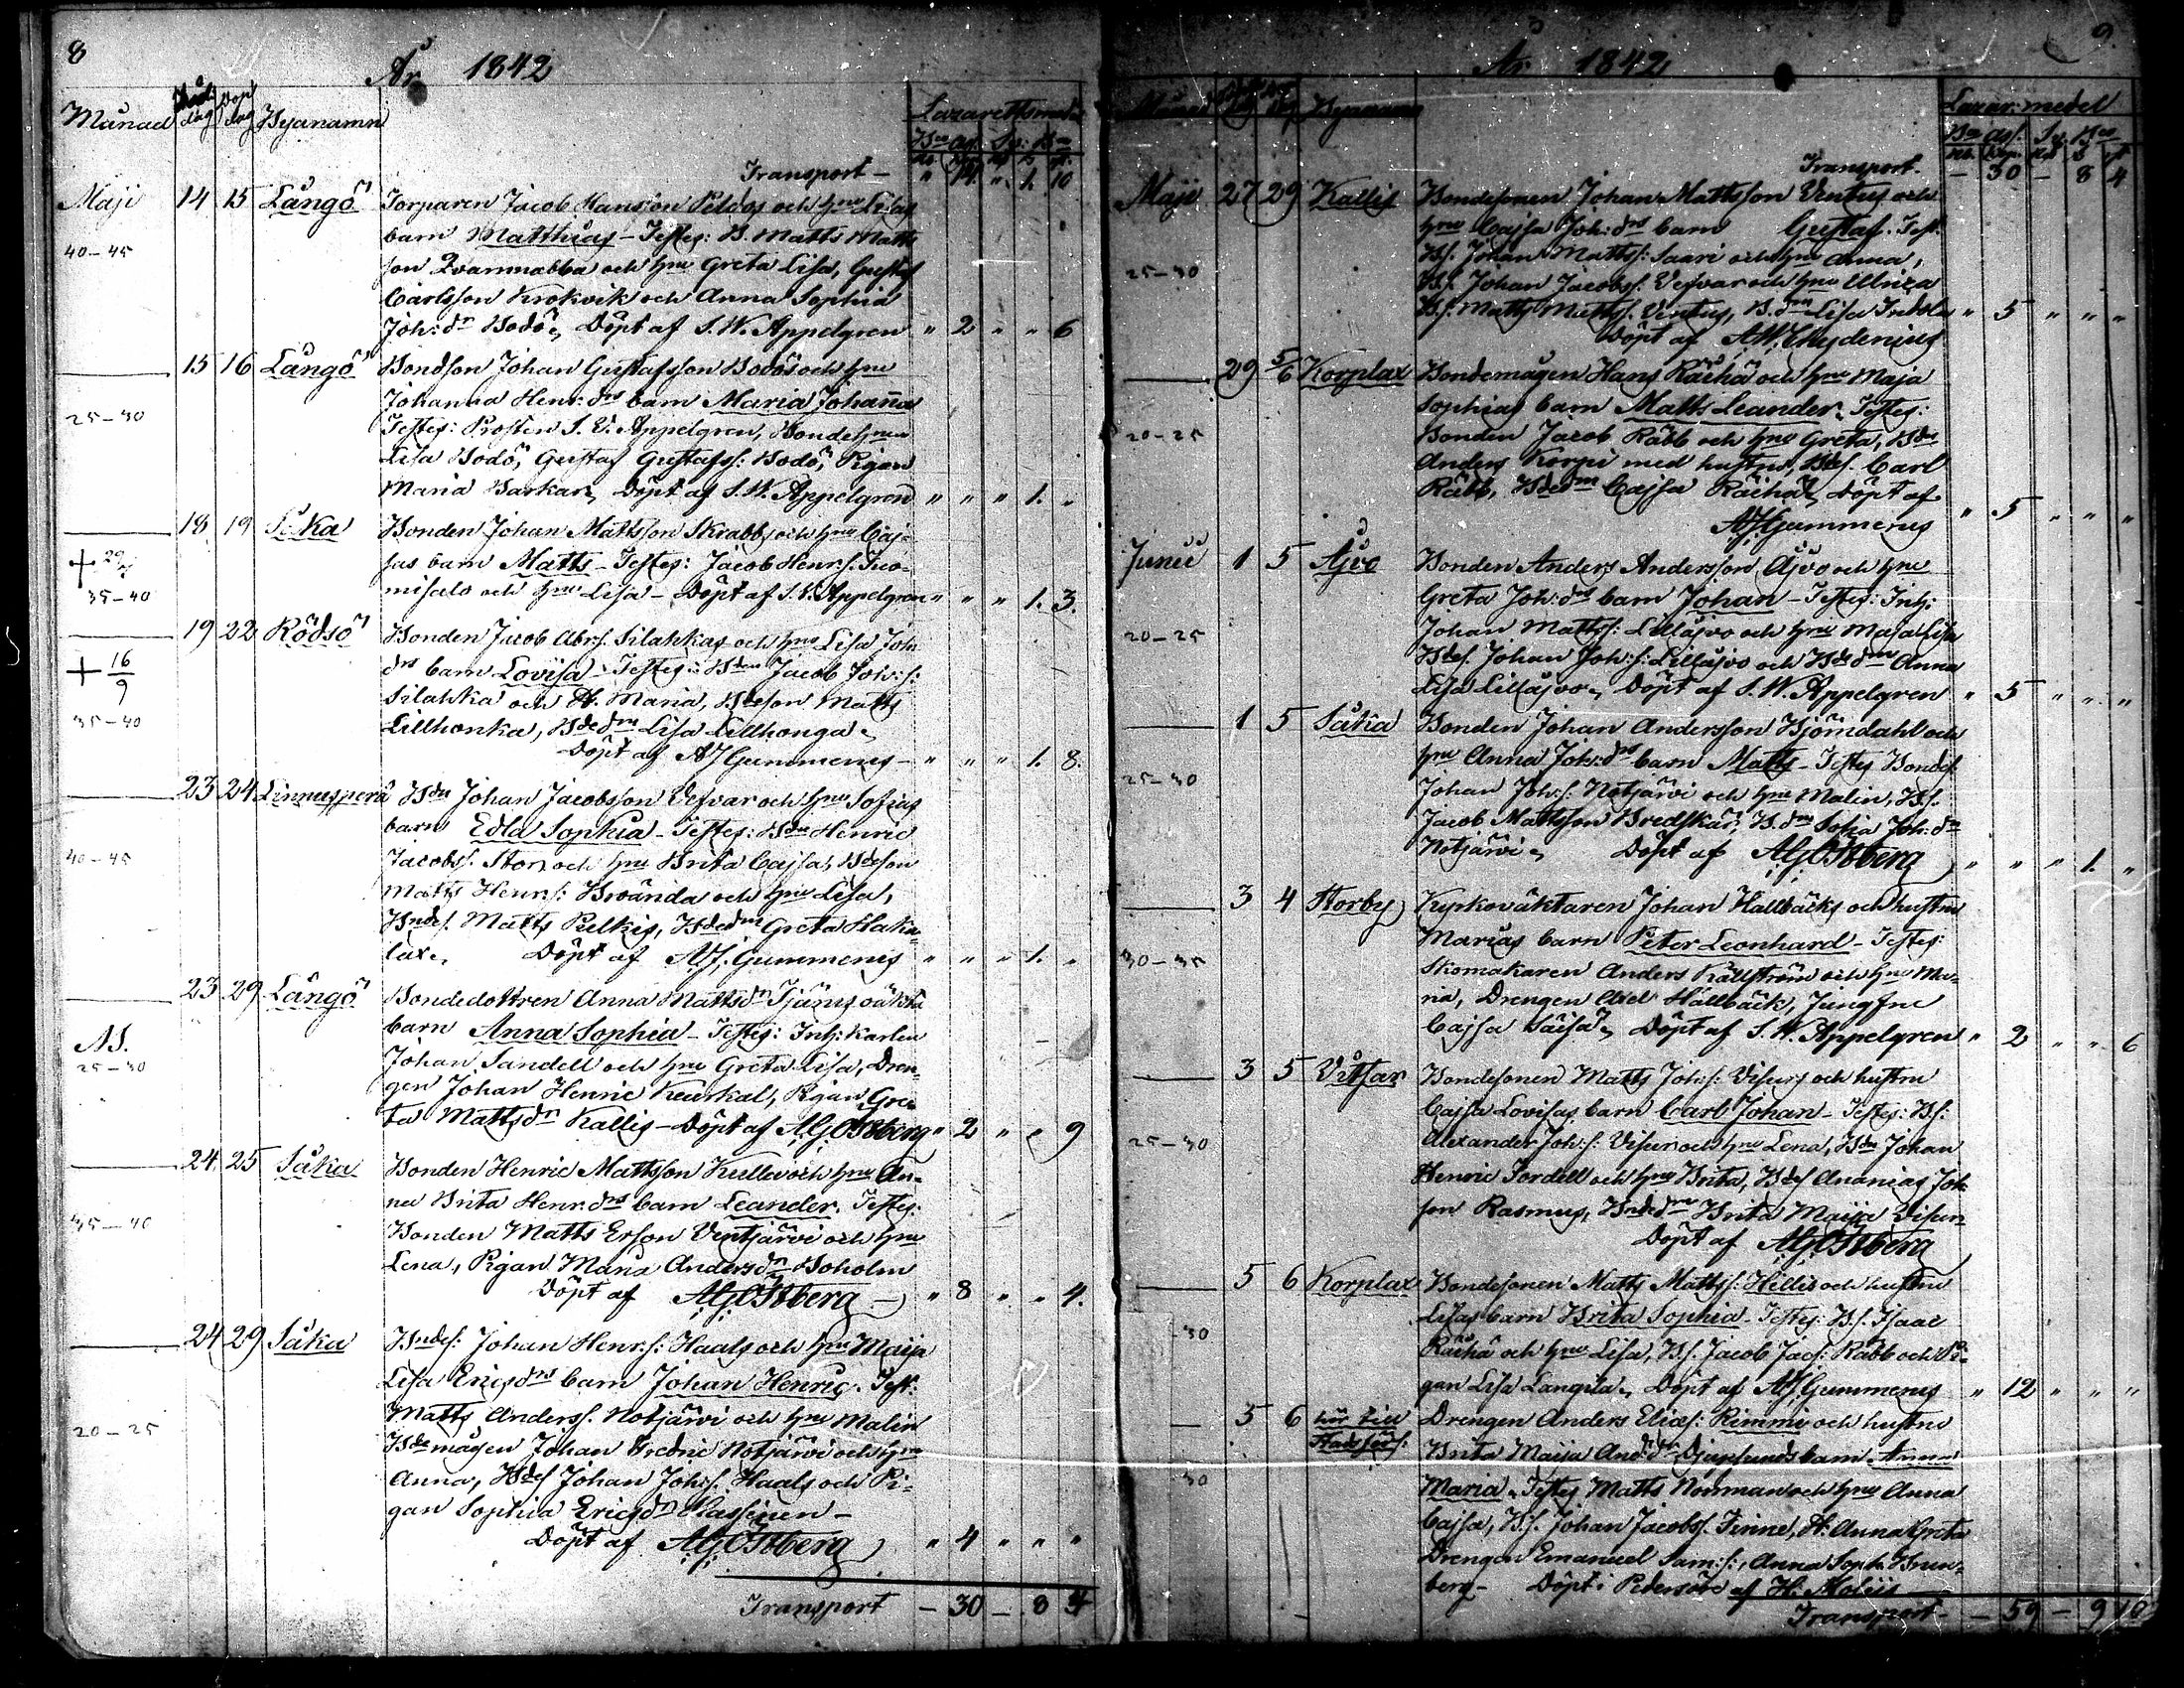 8
År 1842
Månad Föd: dag Döp dag Byanamn Lazarettsmedel
Bco as. Sr: Bco
Transport — " 14 " 1. 10
Maji 14 15 Långö Torparen Jacob Hansson Peldos och hru Lisas
40-45 barn Matthias - Testes: B. Matts Matts
son Qvarnnabba och hru Greta Lisa, Gustaf
Carlsson Krokvik och Anna Sophia
Joh:dr Bodö, Döpt af S. W. Appelgren " 2 " " 6
15 16 Långö Bondson Johan Gustafsson Bodös och hru
Johanna Henr:drs barn Maria Johanna
25-30 Testes: Prosten S. W. Appelgren, Bondehrun
Lisa Bodö, Gustaf Gustafss: Bodö, Pigan
Maria Backar, Döpt af S. W. Appelgren " " " 1. "
18 19 Såka Bonden Johan Mattsson Skrabbs och hru Caj-
+ 29/ sas barn Matts - Testes: Jacob Henr:s. Juo-
35-40 misalo och hru Lisa - Döpt af S. W. Appelgren " " " 1. 3.
19 22 Rödsö Bonden Jacob Abrs. Silahkas och hru Lisa Joh:
+ 16/9 drs barn Lovisa - Testes: Bdn Jacob Joh:s:
35-40 Silahka och H. Maria, Bdeson Matts
Lillhonka, Bdedrn Lisa Lillhonga,
Döpt af A J Gummerus - " " " 1. 8.
23 24 Linnusperä Bdn Johan Jacobsson Vefvar och hru Sofias
barn Edla Sophia - Testes: Bdn Henric
40-45 Jacobss. Stor och hru Brita Cajsa, Bdeson
Matts Henr:s: Broända och hru Lisa,
Bndes. Matts Pelkis, Bdedrn Greta Haka-
lax, Döpt af A. J. Gummerus " " " 1. "
23 29 Långö Bondedottren Anna Mattsdr Tjärus oäkta
barn Anna Sophia - Testes: Inh: Karlen
N S. Johan Sandell och hru Greta Lisa, Dren-
25-30 gen Johan Henric Keuskal, Pigan Gre-
ta Mattsdr Kallis - Döpt af A G Östberg " 2 " " 9
24. 25 Såka Bonden Henric Mattsson Kulles och hru An-
na Brita Henr:drs barn Leander. Testes:
35-40 Bonden Matts Erson Ventjärvi och hru
Lena, Pigan Maria Andersdr Boholm
Döpt af A G Östberg - " 8 " " 4.
24 29 Såka Bndes: Johan Henr:s: Haals och hru Maija
Lisa Ericsdrs barn Johan Henric. Test:
Matts Anderss. Notjärvi och hru Malin
20-25 Bdemågen Johan Fredric Notjärvi och hru
Anna, Bdes Johan Joh:s. Haals och Pi-
gan Sophia Ericsdr Klassinen -
Döpt af A G Östberg " 4 " " "
Transport - 30 - 8 4
9
År 1842
Månad Dag Byanamn Lazar: medel
Bco as. Sr. Bco
Transport. - 30 - 8 4
Maji 27 29 Kallis Bondesonen Johan Mattsson Ventus och
hru Cajsa Joh:drs barn Gustaf. Test.
25-30 Bs. Johan Matts: Saari och hru Anna,
Bs. Johan Jacobss. Vefvar och hru Ulrica
Bs. Matts Matts. Ventus, B.drn Lisa Indola " 5 " " "
Döpt af A. W. Chydenius
29 5/6 Korplax Bondemågen Hans Räihä och hru Maja
Sophias barn Matts Leander, Testes:
20-25 Bonden Jacob Räbb och hru Greta, Bdn
Anders Korpi med hustru, Bdes. Carl
Räbb, Bdedrn Cajsa Räihä, Döpt af
A J Gummerus " 5 " " "
Junii 1 5 Åjvo Bonden Anders Andersson Åjvo och hru
Greta Joh:drs barn Johan - Testes: Inh:
20-25 Johan Matts: Lillåjvo och hru Maja Lisa
Bdes. Johan Joh:s: Lillåjvo och Bdedrn Anna
Lisa Lillåjvo, Döpt af S. W. Appelgren " 5 " " "
1 5 Såka Bonden Johan Andersson Björndahl och
hru Anna Joh:drs barn Matts - Testes Bondes.
25-30 Johan Joh:s: Notjärvi och hru Malin, Bs.
Jacob Mattsson Bredskär, B.drn Sofia Joh:dr
Notjärvi, Döpt af A G Östberg " " " 1. "
3 4 Storby Kyrkoväktaren Johan Hallbäcks och hustru
Marias barn Peter Leonhard - Testes:
30-35 Skomakaren Anders Källström och hru Ma-
ria, Drengen Abel Hällbäck, Jungfru
Cajsa Säisä, Döpt af S. W. Appelgren " 2 " " 6
3 5 Vitsar Bondesonen Matts Joh:s: Visurs och hustru
Cajsa Lovisas barn Carl Johan - Testes: Bs:
25-30 Alexander Joh:s: Visur och hru Lena, Bdn Johan
Henric Sordell och hru Brita, Bdes Ananias Joh
son Rasmus, Bndedrn Brita Maija Visur,
Döpt af A G Östberg
5 6 Korplax Bondesonen Matts Matts: Hellis och hustru
Lisas barn Brita Sophia - Testes: Bs. Isaac
30 Räihä och hru Lisa, Bs. Jacob Jacs: Räbb och Pi-
gan Lisa Langila, Döpt af A J Gummerus " 12 " " "
5 6 hör till Stadsförs. Drengen Anders Elias: Rimmi och hustru
Brita Maija And:dr Djupsunds barn Anna
30 Maria, Testes Matts Norrman och hru Anna
Cajsa, Bs. Johan Jacobss. Finne, H. Anna Greta
Drengen Emanuel Sam:s:, Anna Soph. Brun-
berg - Döpt i Pedersöre af H: Moliis
Transport - - 59 - 9 10